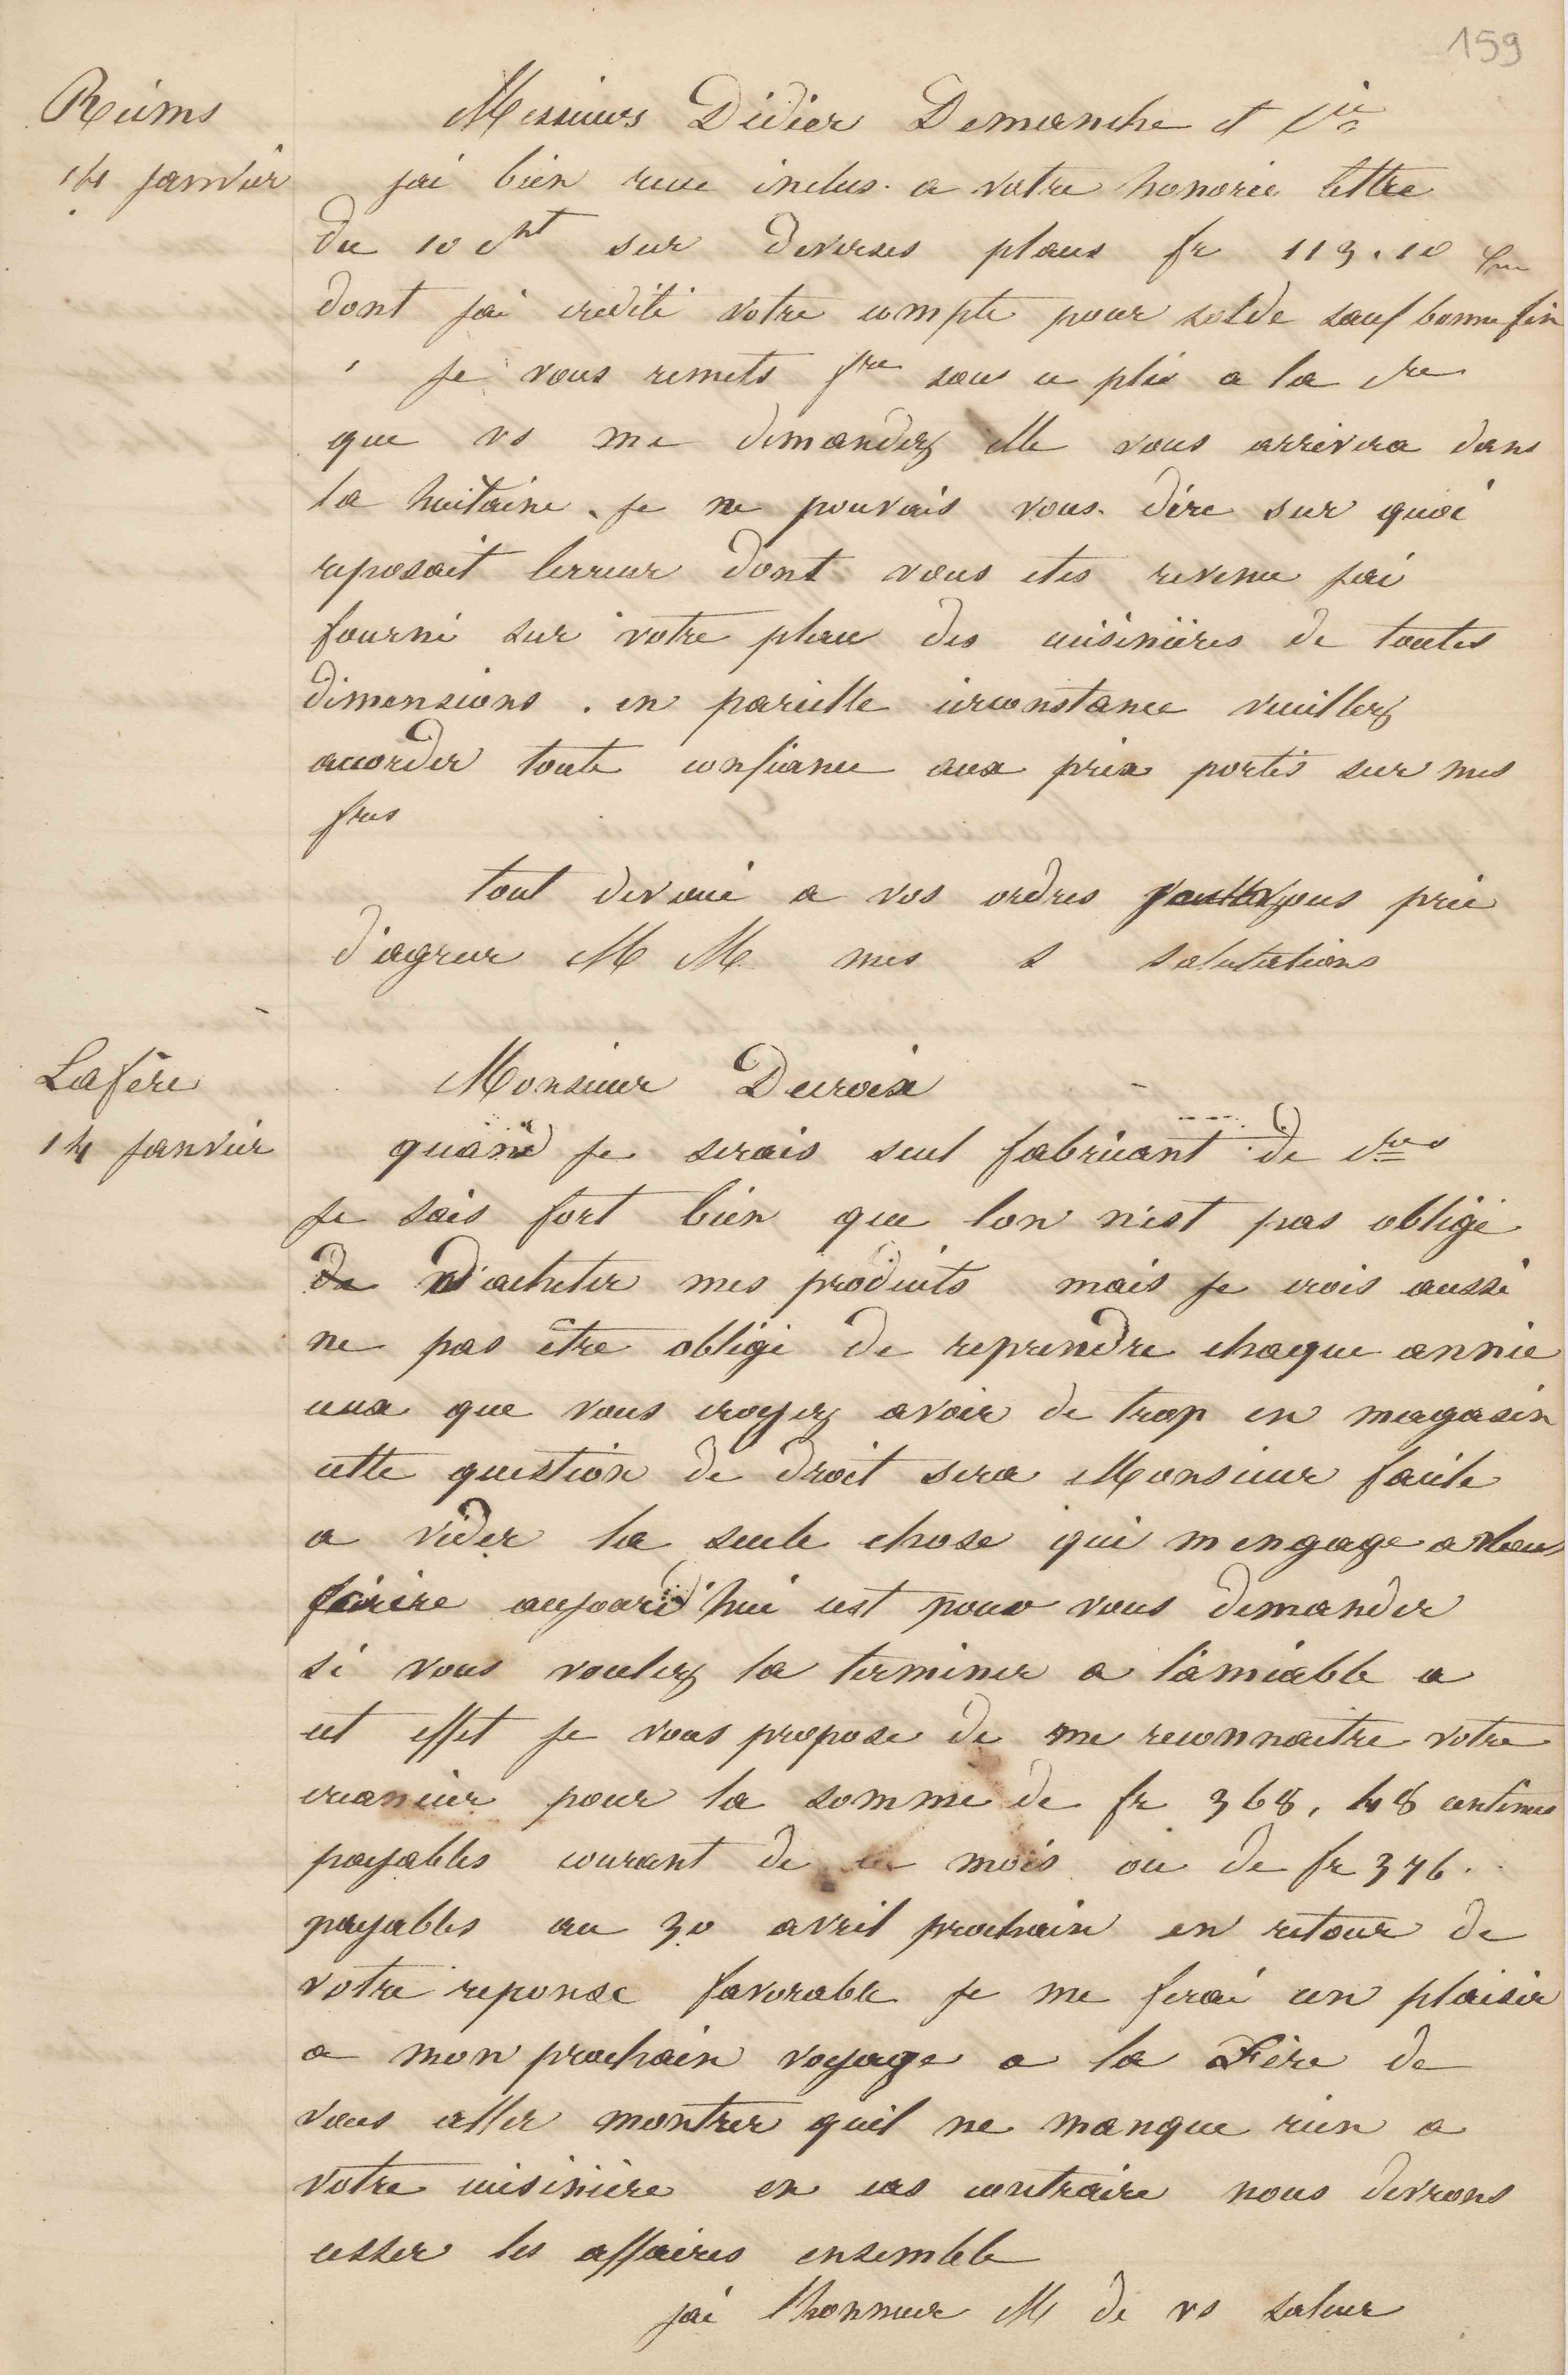 159
Reims
14 janvier
Messieurs Didier Demanche et Cie
jai bien reçue inclus a votre honorée lettre
du 10 ct sur diverses places fr 113.10
dont jai credité votre compte pour solde sauf bonne fin
je vous remets fre sous ce plis a la cre
que vs me demandez elle vous arrivera dans
la huitaine. je ne pouvais vous dire sur quoi
reposait lerreur dont vous etes revenu jai
fourni sur votre place des cuisinières de toutes
dimensions. en pareille circonstance veuillez
accorder toute confiance aux prix portés sur mes
fres
tout devoué a vos ordres vous prie
d'agreer M M mes s salutations
Lafère
14 janvier
Monsieur Decroix
quand je serais seul fabricant de cres
je sais fort bien que lon n'est pas obligé
de d'acheter mes produits mais je crois aussi
ne pas être obligé de reprendre chaque année
ceux que vous croyez avoir de trop en magasin
cette question de droit sera Monsieur facile
a vider la seule chose qui mengage a vous
écrire aujourd'hui cest pour vous demander
si vous voulez la terminer a l'amiable a
cet effet je vous propose de me reconnaitre votre
creancier pour la somme de fr 368,48 centimes
payables courant de ce mois ou de fr 376.
payables au 30 avril prochain en retour de
votre reponse favorable je me ferai un plaisir
a mon prochain voyage a la Fère de
vous aller montrer quil ne manque rien a
votre cuisinière en cas contraire nous devrons
cesser les affaires ensemble
jai l'honneur M de vs saluer